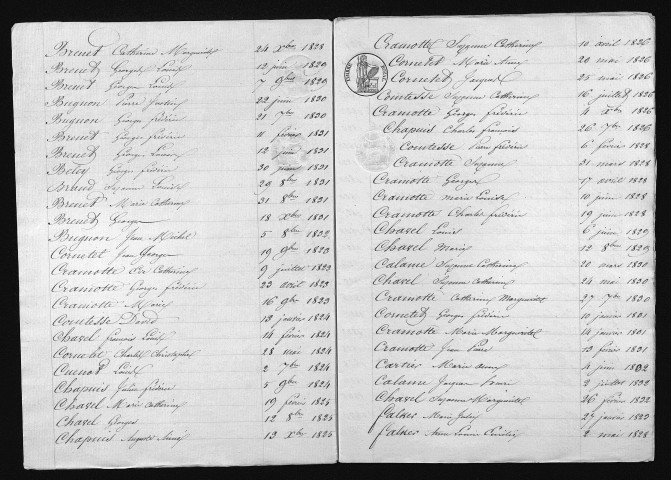 Brenet Catherine Marguerite 24 Xbre 1828
Brenet Georges Louis 12 juin 1829
Brenet Georges Louis 7 9bre 1829
Bugnon Pierre 22 juin 1830
Bugnon Georges Frédéric 21 7bre 1830
Brenet Georges Frédéric 11 février 1831
Brenet Georges 12 juin 1831
Georges Frédéric 30 juin 1831
Suzanne 29 8bre 1831
Brenet Marie Catherine 31 8bre 1831
Brenet Georges 18 Xbre 1831
Bugnon Jean Michel 5 8bre 1822
Cornetet Jean Georges 19 9bre 1823
Cramotte Catherine 9 juillet 1823
Cramotte Georges Frédéric 23 avril 1823
Cramotte Marie 16 9bre 1823
Comtesse David 13 janvier 1824
Chavel François Louis 14 février 1824
Cornetet Charles Christophe 28 mai 1824
Cuenot Louis 2 7bre 1824
Chapuis Julie Frédéric 5 9bre 1824
Chavel Marie Catherine 19 février 1825
Chavel Georges 12 8bre 1825
Chapuis Auguste Aimé 13 Xbre 1825
Cramotte Suzanne Catherine 10 avril 1826
Cornetet Marie 20 mai 1826
Cornetet Jacques 25 mai 1826
Comtesse Suzanne Catherine 16 juillet 1826
Cramotte Georges Frédéric 4 Xbre 1826
Chapuis Charles François 26 7bre 1826
Comtesse Pierre Frédéric 6 février 1828
Cramotte Suzanne 31 mars 1828
Cramotte Georges 17 avril 1828
Cramotte Marie Louise 10 juin 1828
Cramotte Charles Frédéric 19 juin 1828
Chavel Louis 6 juin 1829
Chavel Marie 12 8bre 1829
Calame Suzanne Catherine 20 mars 1830
Chavel Suzanne Catherine 24 mai 1830
Cramotte Catherine Marguerite 27 7bre 1830
Cornetet Georges Frédéric 10 janvier 1831
Cramotte Marie Marguerite 14 janvier 1831
Cramotte Jean Pierre 13 février 1831
Cartier Marie 4 juin 1832
Calame Jacques Louis 2 juillet 1832
Chavel Suzanne Marguerite 26 février 1832
Falaer Marie Julie 27 janvier 1823
Falaer Louise 2 mai 1828